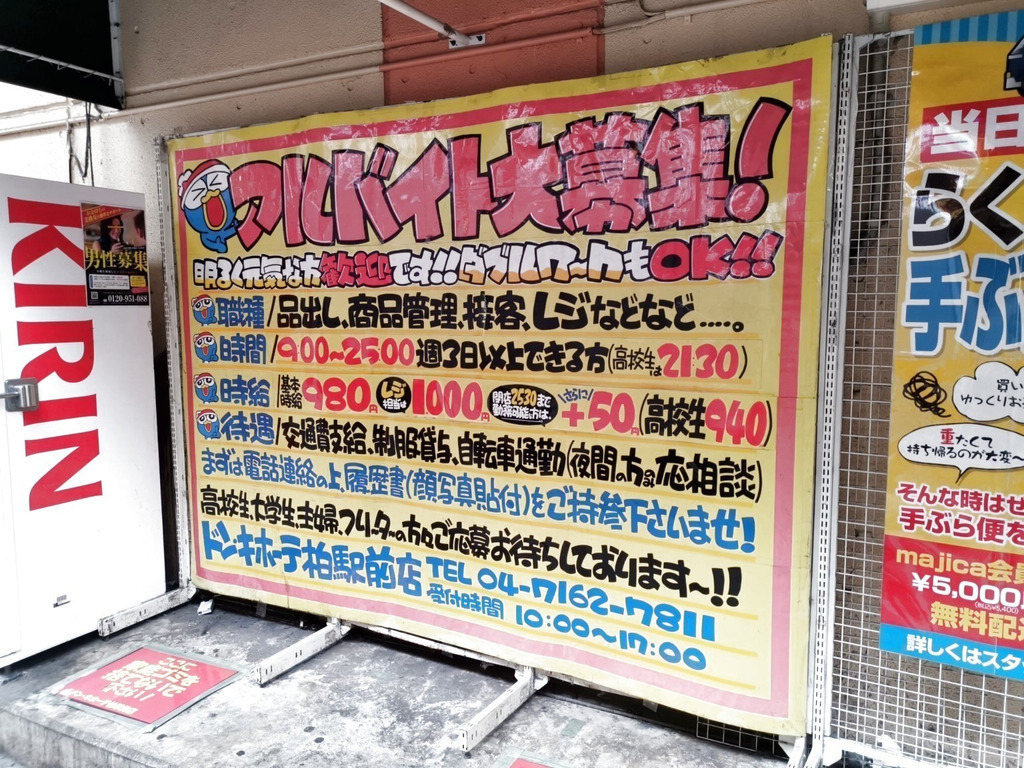 アルバイト大募集!
明るく元気な方歓迎です!!ダブルワークもOK!!
職種/品出し、商品管理、接客、レジなどなど.....。
時間/9:00~25:00 週3日以上できる方(高校生は21:30)
時給/基本時給980円 レジ担当は1000円 閉店25:30まで勤務可能な方は、さらに+50円(高校生940)
待遇/交通費支給、制服貸与、自転車通勤(夜間の方のみ応相談)
まずは電話連絡の上、履歴書(顔写真貼付)をご持参下さいませ!
高校生、大学生、主婦、フリーターの方々ご応募お待ちしております~!!
ドンキホーテ柏駅前店 TEL 04-7162-7811
受付時間 10:00~17:00
KIRIN
男性募集
0120-951-088
当日
らく
手ぶ
買い
ゆっくりお
重たくて
持ち帰るのが大変~
そんな時はぜ
手ぶら便を
majica会員
¥5,000
(税込¥5,400)
無料配
詳しくはスタ
ここに